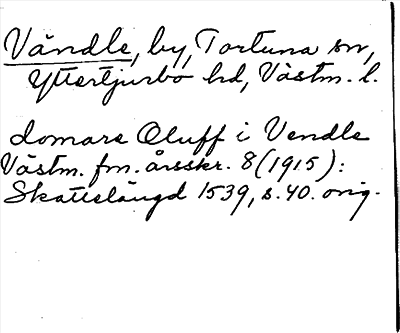 Vändle, by, Tortuna sn,
Yttertjurbo hd, Västm. l.
domare Oluff i Vendle
Västm. fm. årsskr. 8 (1915):
Skattelängd 1539, s. 40. orig.